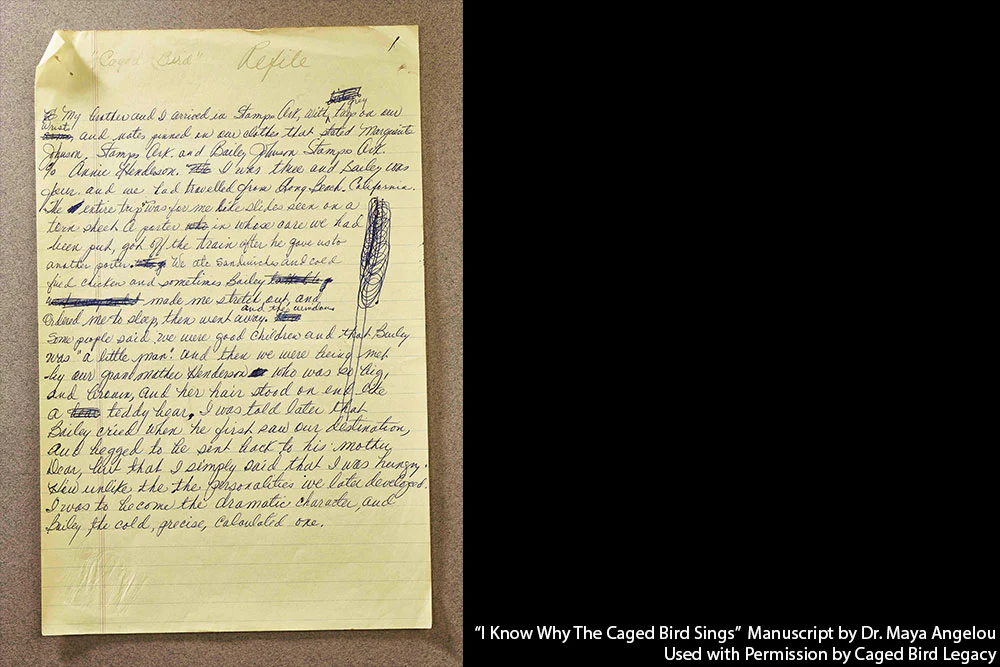 "Caged Bird" Refile 1
My brother and I arrived in Stamps Ark, with grey tags on our
Wrist, and notes pinned on our clothes that stated Marguerite
Johnson, Stamps Ark. and Bailey Johnson Stamps Ark.
℅ Annie Henderson. I was three and Bailey was
four. and we had travelled from Long Beach. California.
The entire trip was for me like slides seen on a
torn sheet A porter in whose care we had
been put, got off the train after he gave us to
another porter. We ate sandwiches and cold
fried chicken and sometimes Bailey
made me stretch out, and
Ordered me to sleep, then went away. and the windows
Some people said we were good children and that Bailey
was "a little man". and then we were being met
by our grandmother Henderson who was so big,
and brown, and her hair stood on end like
a teddy bear, I was told later that
Bailey cried when he first saw our destination,
and begged to be sent back to his mother
Dear, but that I simply said that I was hungry.
How unlike the the personalities we later developed.
I was to become the dramatic character, and
Bailey the cold, precise, calculated one.
"I Know Why The Caged Bird Sings" Manuscript by Dr. Maya Angelou
Used with Permission by Caged Bird Legacy